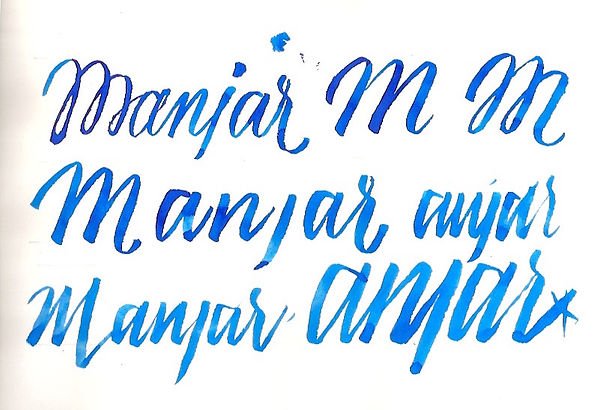 Manjar M M
Manjar anjar
Manjar anjar